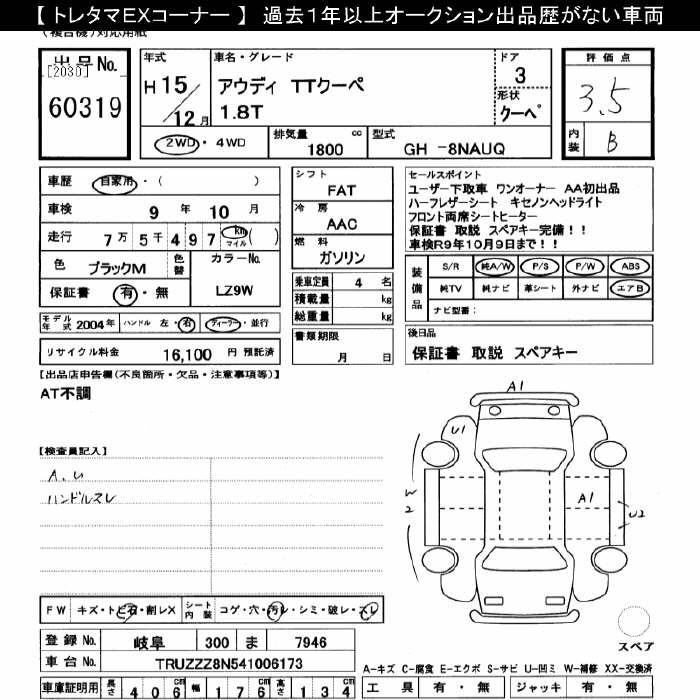 【 トレタマEXコーナー 】 過去1年以上オークション出品歴がない車両
(複合機)対応用紙
出品No.
[2030]
60319
年式
H 15/12月
車名・グレード
アウディ TTクーペ
1.8T
ドア
3
形状
クーペ
評価点
3.5
内装
B
2WD・4WD
排気量 cc
1800
型式
GH -8NAUQ
車歴 自家用・( )
車検 9年 10月
走行 7万 5千 4 9 7 km マイル ( )
色 ブラックM 色替
カラーNo.
LZ9W
保証書 有・無
モデル年式 2004年 ハンドル 左・右 ディーラー・並行
リサイクル料金 16,100 円 預託済
シフト
FAT
冷房
AAC
燃料
ガソリン
乗車定員 4 名
積載量 kg
総重量 kg
書類期限
月 日
セールスポイント
ユーザー下取車 ワンオーナー AA初出品
ハーフレザーシート キセノンヘッドライト
フロント両席シートヒーター
保証書 取説 スペアキー完備!!
車検R9年10月9日まで!!
装備品
S/R 純A/W P/S P/W ABS
純TV 純ナビ 革シート 外ナビ エアB
ナビ型番:
後日品
保証書 取説 スペアキー
【出品店申告欄(不良箇所・欠品・注意事項等)】
AT不調
【検査員記入】
A、U
ハンドルスレ
A1
U1
W2
A1
U2
スペア
FW キズ・トビ石・割レX
シート内装 コゲ・穴・汚レ・シミ・破レ・スレ
登録No. 岐阜 300 ま 7946
車台No. TRUZZZ8N541006173
車庫証明用 長さ 406cm 幅 176cm 高さ 134cm
A-キズ C-腐食 E-エクボ S-サビ U-凹ミ W-補修 XX-交換済
工具 有・無 ジャッキ 有・無